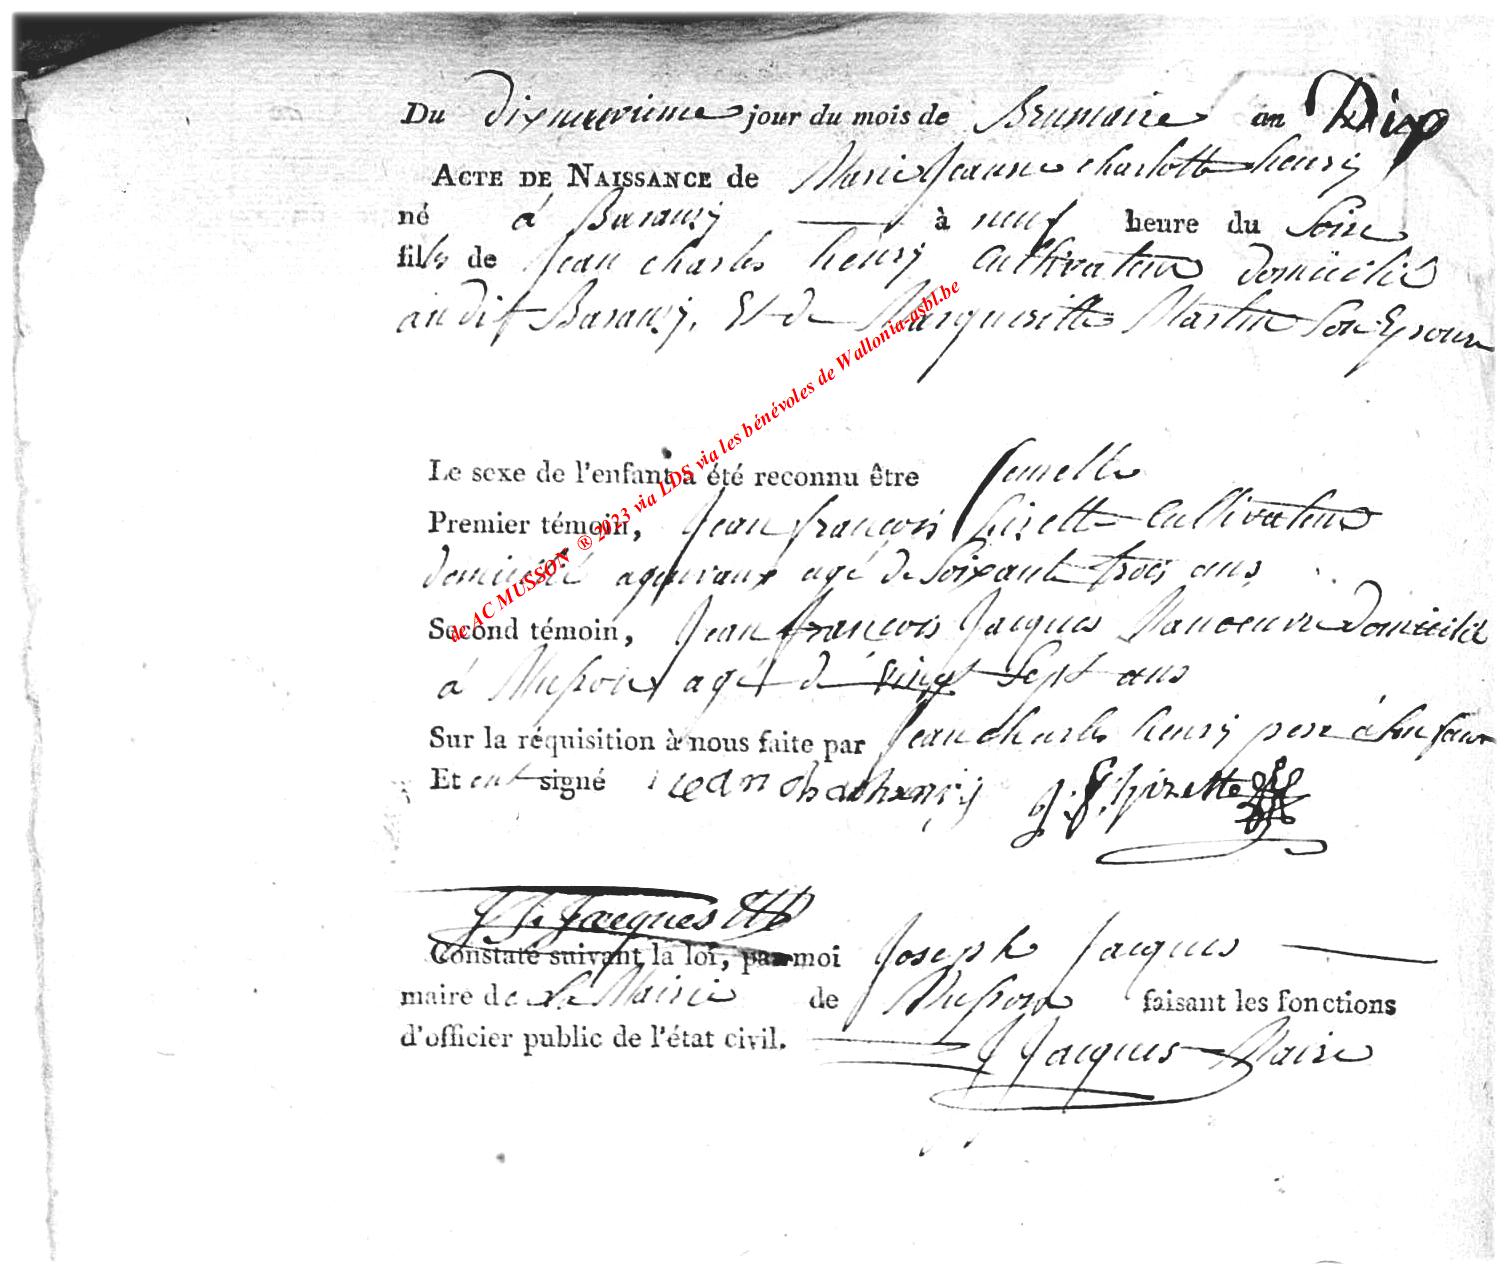 Du dixneuvieme jour du mois de Brumaire an Dix
ACTE DE NAISSANCE de Marie Jeanne charlotte henry
né à Baranzy à neuf heure du Soire
fille de Jean charles henry Cultivateur domicilié
audit Baranzy. Et de Margueritte Martin Son Epouse
Le sexe de l'enfant a été reconnu être femelle
Premier témoin, Jean françois hizette Cultivateur
domicilié agé de Soixante trois ans
Second témoin, Jean françois Jacques Manoeuvre domicilié
à Musson agé de vingt Sept ans
Sur la réquisition à nous faite par Jean charles henry pere
Et ont signé jean charles henry J. F. hizette
J F Jacques
Constaté suivant la loi, par moi Joseph Jacques
maire de la Mairie de Musson faisant les fonctions
d'officier public de l'état civil.
J Jacques Maire
de AC MUSSON ® 2023 via LDS via les bénévoles de Wallonia-asbl.be